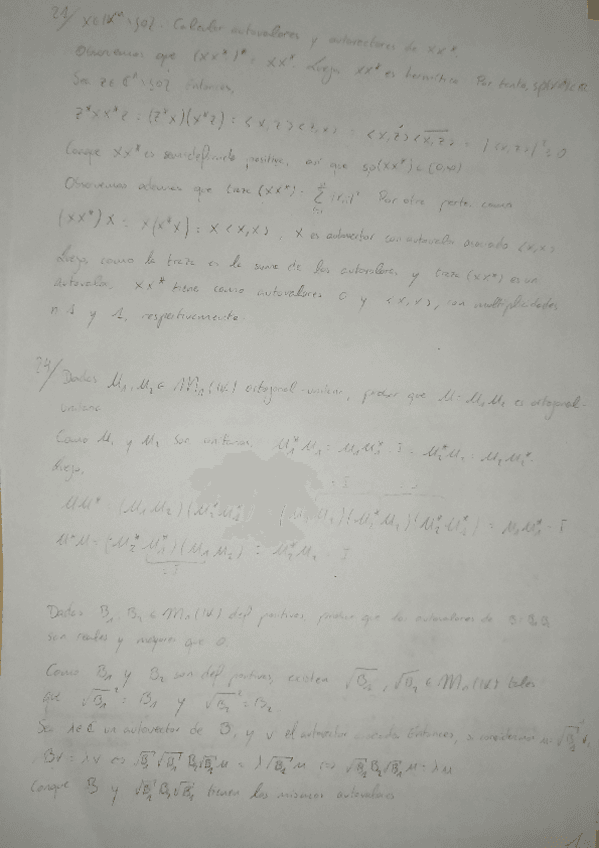 21/ x∈ℂⁿ∖{0}. Calcular autovalores y autovectores de xx*.
Observemos que (xx*)* = xx*. Luego xx* es hermítica. Por tanto,
Sea z∈ℂⁿ∖{0}. Entonces,
z*xx*z = (z*x)(x*z) = <x,z><z,x> = <x,z><x,z>‾ = |<x,z>|² ≥ 0
Conque xx* es semidefinida positiva, así que sp(xx*) ⊂ [0,∞)
Observemos además que traza(xx*) = Σ |xᵢ|². Por otra parte, como
(xx*)x = x(x*x) = x<x,x>, x es autovector con autovalor asociado <x,x>
Luego como la traza es la suma de los autovalores y traza(xx*) es un
autovalor, xx* tiene como autovalores 0 y <x,x>, con multiplicidades
n-1 y 1, respectivamente.
24/ Dadas M₁, M₂ ∈ Mₙ(K) ortogonal-unitaria, probar que M = M₁M₂ es ortogonal-
unitaria
Como M₁ y M₂ son unitarias, M₁*M₁ = M₁M₁* = I = M₂*M₂ = M₂M₂*.
Luego,
MM* = (M₁M₂)(M₂*M₁*) = M₁M₁* = I
M*M = (M₂*M₁*)(M₁M₂) = M₂*M₂ = I
= I
Dadas B₁, B₂ ∈ Mₙ(K) def. positivas, probar que los autovalores de B = B₁B₂
son reales y mayores que 0.
Como B₁ y B₂ son def. positivas, existen √B₁, √B₂ ∈ Mₙ(K) tales
que √B₁² = B₁ y √B₂² = B₂.
Sea λ∈ℂ un autovector de B, y v el autovector asociado. Entonces, si consideramos
Bv = λv ⇔ √B₁√B₁B₂√B₁u = λ√B₁u ⇔ √B₁B₂√B₁u = λu
Conque B y √B₁B₂√B₁ tienen los mismos autovalores
1